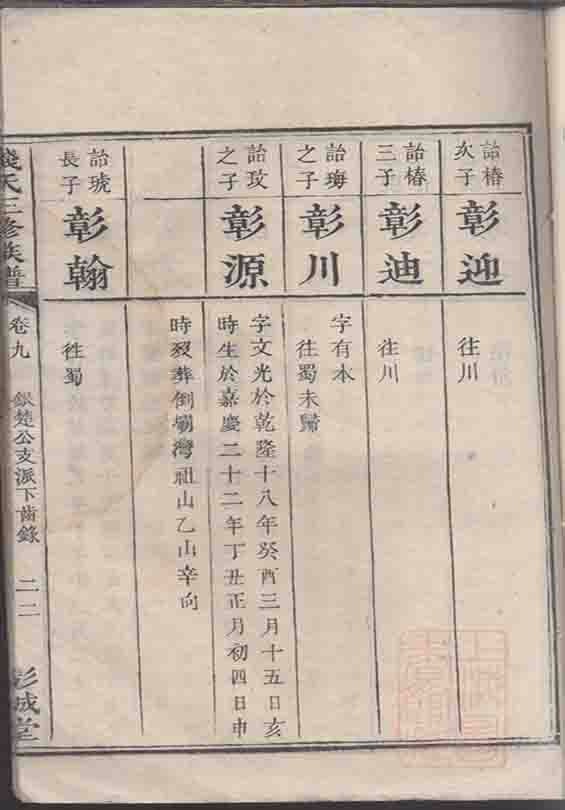 詒椿
次子
彰迎
往川
詒椿
三子
彰迪
往川
詒海
之子
彰川
字有本
往蜀未歸
詒玫
之子
彰源
字文光於乾隆十八年癸酉三月十五日亥
時生於嘉慶二十二年丁丑正月初四日申
時歿葬倒塌灣祖山乙山辛向
詒琥
長子
彰翰
往蜀
錢氏三修族譜
卷九
銀楚公支派下齒錄
二二
彭城堂